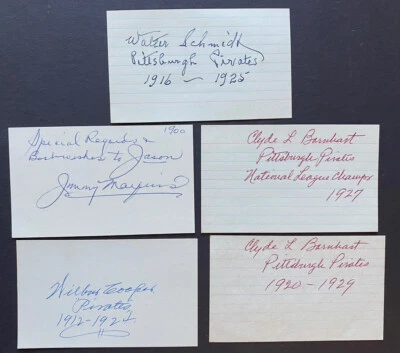 Walter Schmidt
Pittsburgh Pirates
1916 - 1925
1900
Special Regards &
Best wishes to Jason
Jimmy
Clyde L Barnhart
Pittsburgh Pirates
National League Champs
1927
Wilbur Cooper
Pirates
1912-1924
Clyde L Barnhart
Pittsburgh Pirates
1920 - 1929